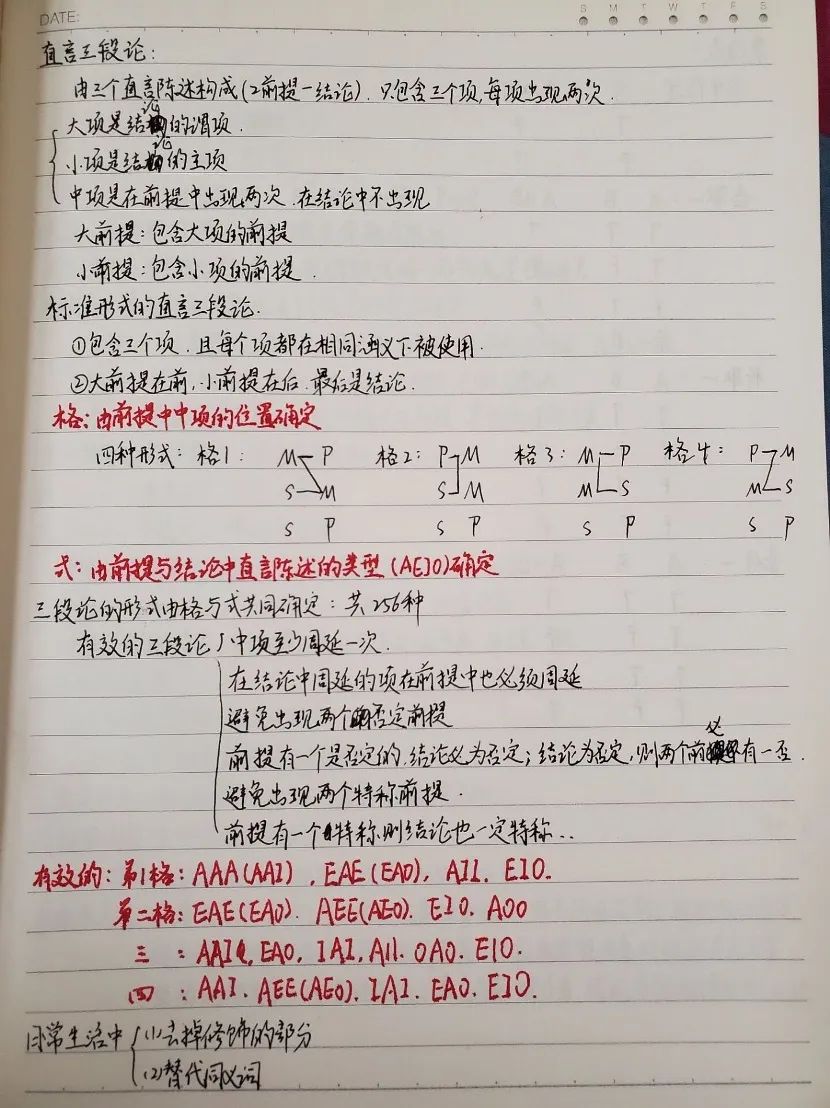 DATE:
S M T W T F S
直言三段论:
由三个直言陈述构成(2前提一结论). 只包含三个项,每项出现两次.
大项是结论的谓项.
小项是结论的主项
中项是在前提中出现两次.在结论中不出现
大前提:包含大项的前提
小前提:包含小项的前提.
标准形式的直言三段论.
①包含三个项.且每个项都在相同涵义下被使用.
②大前提在前,小前提在后.最后是结论.
格:由前提中中项的位置确定
四种形式: 格1: M P 格2: P M 格3: M P 格4: P M
S M S M M S M S
S P S P S P S P
式:由前提与结论中直言陈述的类型(AEIO)确定
三段论的形式由格与式共同确定:共256种
有效的三段论 中项至少周延一次.
在结论中周延的项在前提中也必须周延
避免出现两个否定前提
前提有一个是否定的.结论必为否定;结论为否定,则两个前提必有一否.
避免出现两个特称前提.
前提有一个特称则结论也一定特称..
有效的:第1格:AAA(AAI),EAE(EAO),AII.EIO.
第二格:EAE(EAO).AEE(AEO).EIO.AOO
三:AAI,EAO,IAI,AII.OAO.EIO.
四:AAI.AEE(AEO).IAI.EAO.EIO.
日常生活中 (1)去掉修饰的部分
(2)替代同义词